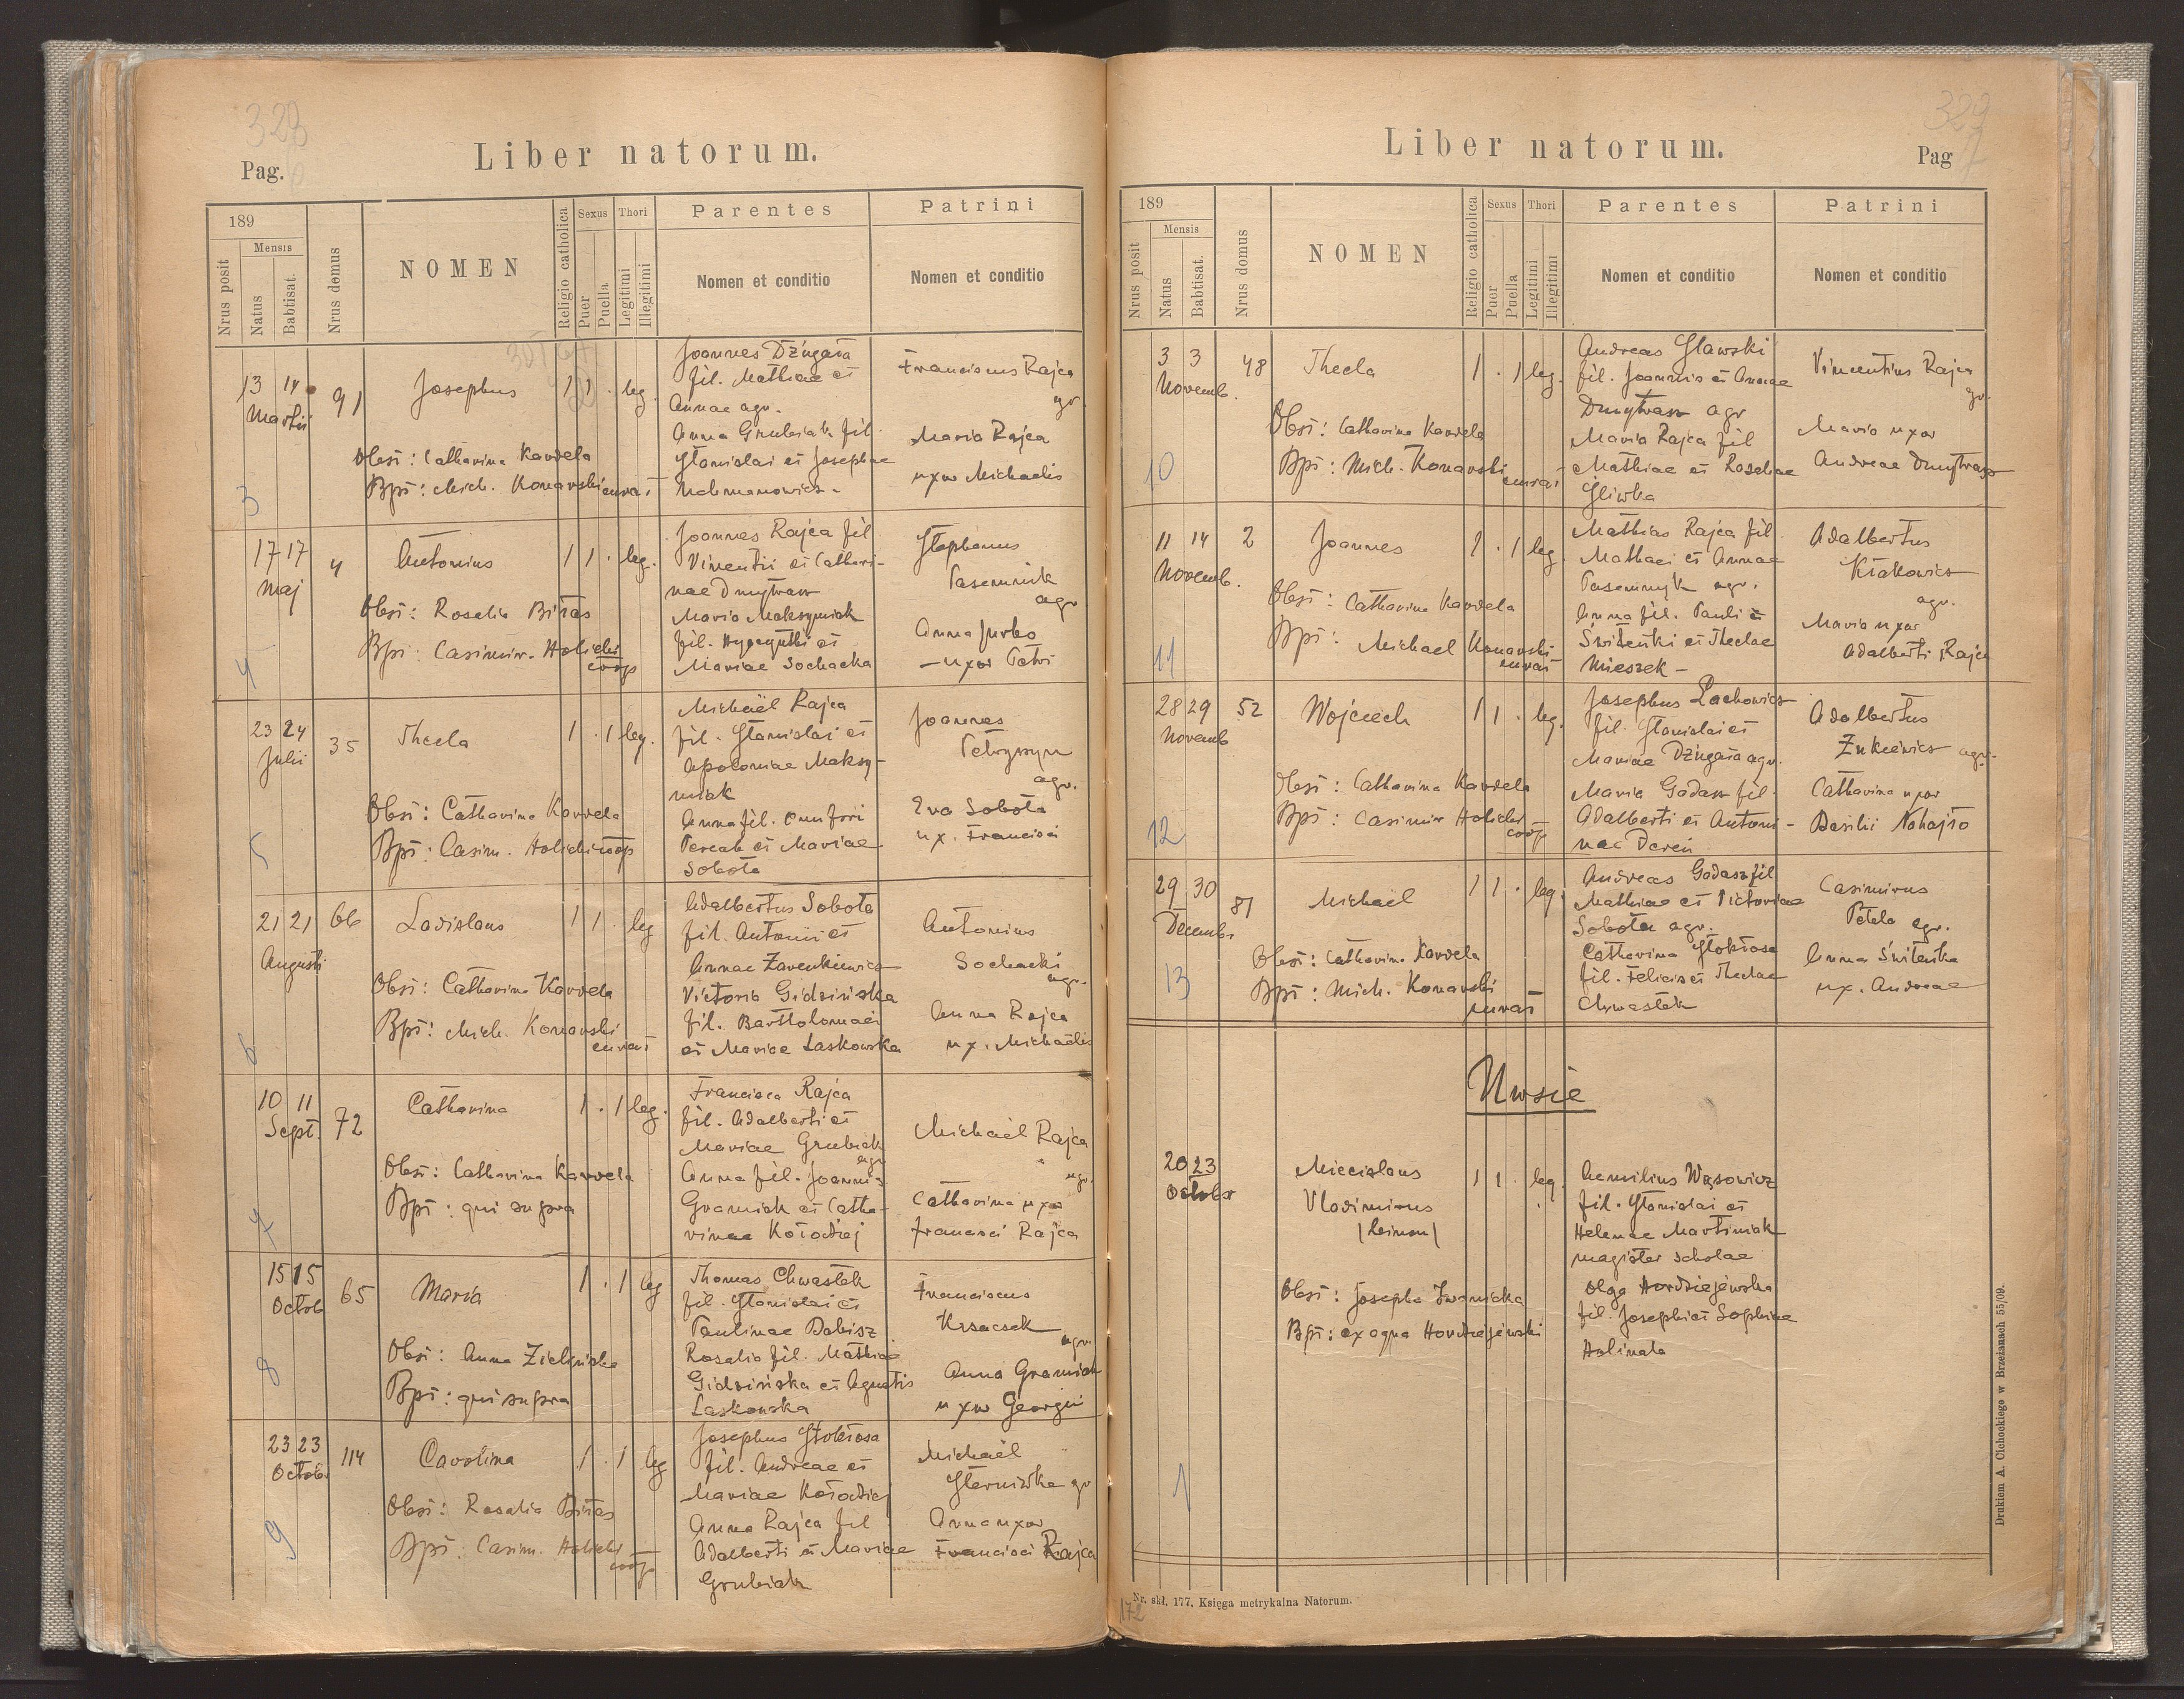 328
Pag.
Liber natorum.
189
Mensis
Nrus posit
Natus
Babtisat.
Nrus domus
NOMEN
Religio catholica
Sexus
Puer
Puella
Thori
Legitimi
Illegitimi
Parentes
Nomen et conditio
Patrini
Nomen et conditio
13 14 Martii
91
Josephus
1 1 . leg.
Joannes Dziugała
fil. Mathiae et
Annae agr.
Anna Grubiak fil.
Stanislai et Josephae
Franciscus Rajca
agr.
Maria Rajca
uxor Michaelis
Obst: Catharina Kardela
Bpt: Mich. Konarski curat
3
17 17
Maj
4
Antonius
1 1 . leg.
Joannes Rajca fil
Vincentii et Cathari-
nae Dmytrasz
Maria Maksymiak
fil. Hyacynthi et
Mariae Sochacka
Stephanus
Pasemnik
agr
Anna Jurko
– uxor Petri
Obst: Rosalia Bitas
Bpt: Casimir. Holicki
coop
4
23 24
Julii
35
Thecla
1 . 1 leg.
Michaël Rajca
fil. Stanislai et
Apoloniae Maksy-
miak
Anna fil. Onufrii
et Mariae
Sobota
Joannes
Petryszyn
agr.
Eva Sobota
ux. Francisci
Obst: Catharina Kardela
Bpt: Casim. Holicki coop
5
21 21
Augusti
66
Ladislaus
1 1 . leg
Adalbertus Sobota
fil. Antonii et
Annae Zarenkiewicz
Victoria Gidzińska
fil. Bartholomaei
et Mariae Laskowska
Antonius
Sochacki
agr.
Anna Rajca
ux. Michaëlis
Obst: Catharina Kardela
Bpt: Mich. Konarski
curat
6
10 11
Sept.
72
Catharina
1 . 1 leg.
Francisca Rajca
fil. Adalberti et
Mariae Grubiak
agr
Anna fil. Joannis
Gramiak et Catha-
rinae Kołodziej
Michaël Rajca
agr.
Catharina uxor
Francisci Rajca
Obst: Catharina Kardela
Bpt: qui supra
7
15 15
Octob
65
Maria
1 . 1 leg
Thomas Chwastek
fil. Stanislai et
Paulinae Babisz
Rosalia fil. Mathiae
Gidzińska et Agnetis
Laskowska
Franciscus
Krzaczek
agr.
Anna Gramiak
uxor Georgii
Obst: Anna Zielińska
Bpt: qui supra
8
23 23
Octobr
114
Carolina
1 . 1 leg
Josephus Stokłosa
fil. Andreae et
Mariae Kołodziej
Anna Rajca fil
Adalberti et Mariae
Grubiak
Michaël
agr
Anna uxor
Francisci Rajca
Obst: Rosalia Bitas
Bpt: Casim. Holicki
coop
9
329
Liber natorum.
Pag
189
Mensis
Nrus posit
Natus
Babtisat.
Nrus domus
NOMEN
Religio catholica
Sexus
Puer
Puella
Thori
Legitimi
Illegitimi
Parentes
Nomen et conditio
Patrini
Nomen et conditio
3 3
Novemb.
48
Thecla
1 . 1 leg.
Andreas Sławski
fil. Joannis et Annae
Dmytrasz agr
Maria Rajca fil
Mathiae et Rosaliae
Śliwka
Vincentius Rajca
gr.
Maria uxor
Andreae Dmytrasz
Obst: Catharina Kardela
Bpt: Mich. Konarski
curat
10
11 14
Novemb.
2
Joannes
1 . 1 leg.
Mathias Rajca fil
Mathaei et Annae
Pasemnyk agr.
Anna fil. Pauli et
et Theclae
Mieszek –
Adalbertus
Krakowicz
agr.
Maria uxor
Adalberti Rajca
Obst: Catharina Kardela
Bpt: Michael Konarski
curat
11
28 29
Novemb
52
Wojciech
1 1 . leg.
Josephus Lachowicz
fil. Stanislai et
Mariae Dziugała agr.
Maria Godasz fil.
Adalberti et Antoni-
nae Dereń
Adalbertus
Żukiewicz agr.
Catharina uxor
Basilii
Obst: Catharina Kardela
Bpt: Casimir Holicki
coop
12
29 30
Decembr
81
Michaël
1 1 . leg.
Andreas Godasz fil
Mathiae et Victoriae
Sobota agr.
Catharina Stokłosa
fil. Felicis et Theclae
Chwastek
Casimirus
Petela agr.
Anna
ux. Andreae
Obst: Catharina Kardela
Bpt: Mich. Konarski
curat
13
Uwsie
20 23
Octobr
Miecislaus
Vladimirus
1 1 . leg.
Aemilius Wąsowicz
fil. Stanislai et
Helenae Martiniak
magister scholae
Olga Hordziejewska
fil. Josephi et Sophiae
Obst: Josepha Iwanicka
Bpt: ex aqua Hordziejewski
1
172
Nr. skł. 177. Księga metrykalna Natorum.
Drukiem A. Cichockiego w Brzeżanach 55/09.